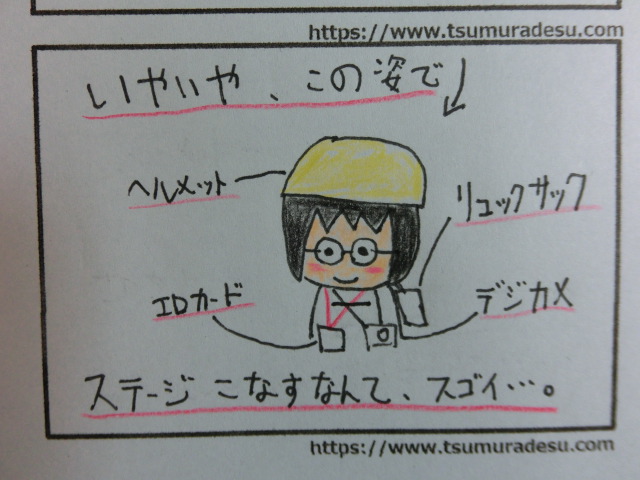 https://www.tsumuradesu.com
いやいや、この姿で↓
ヘルメット
リュックサック
IDカード
デジカメ
ステージこなすなんて、スゴイ…。
https://www.tsumuradesu.com